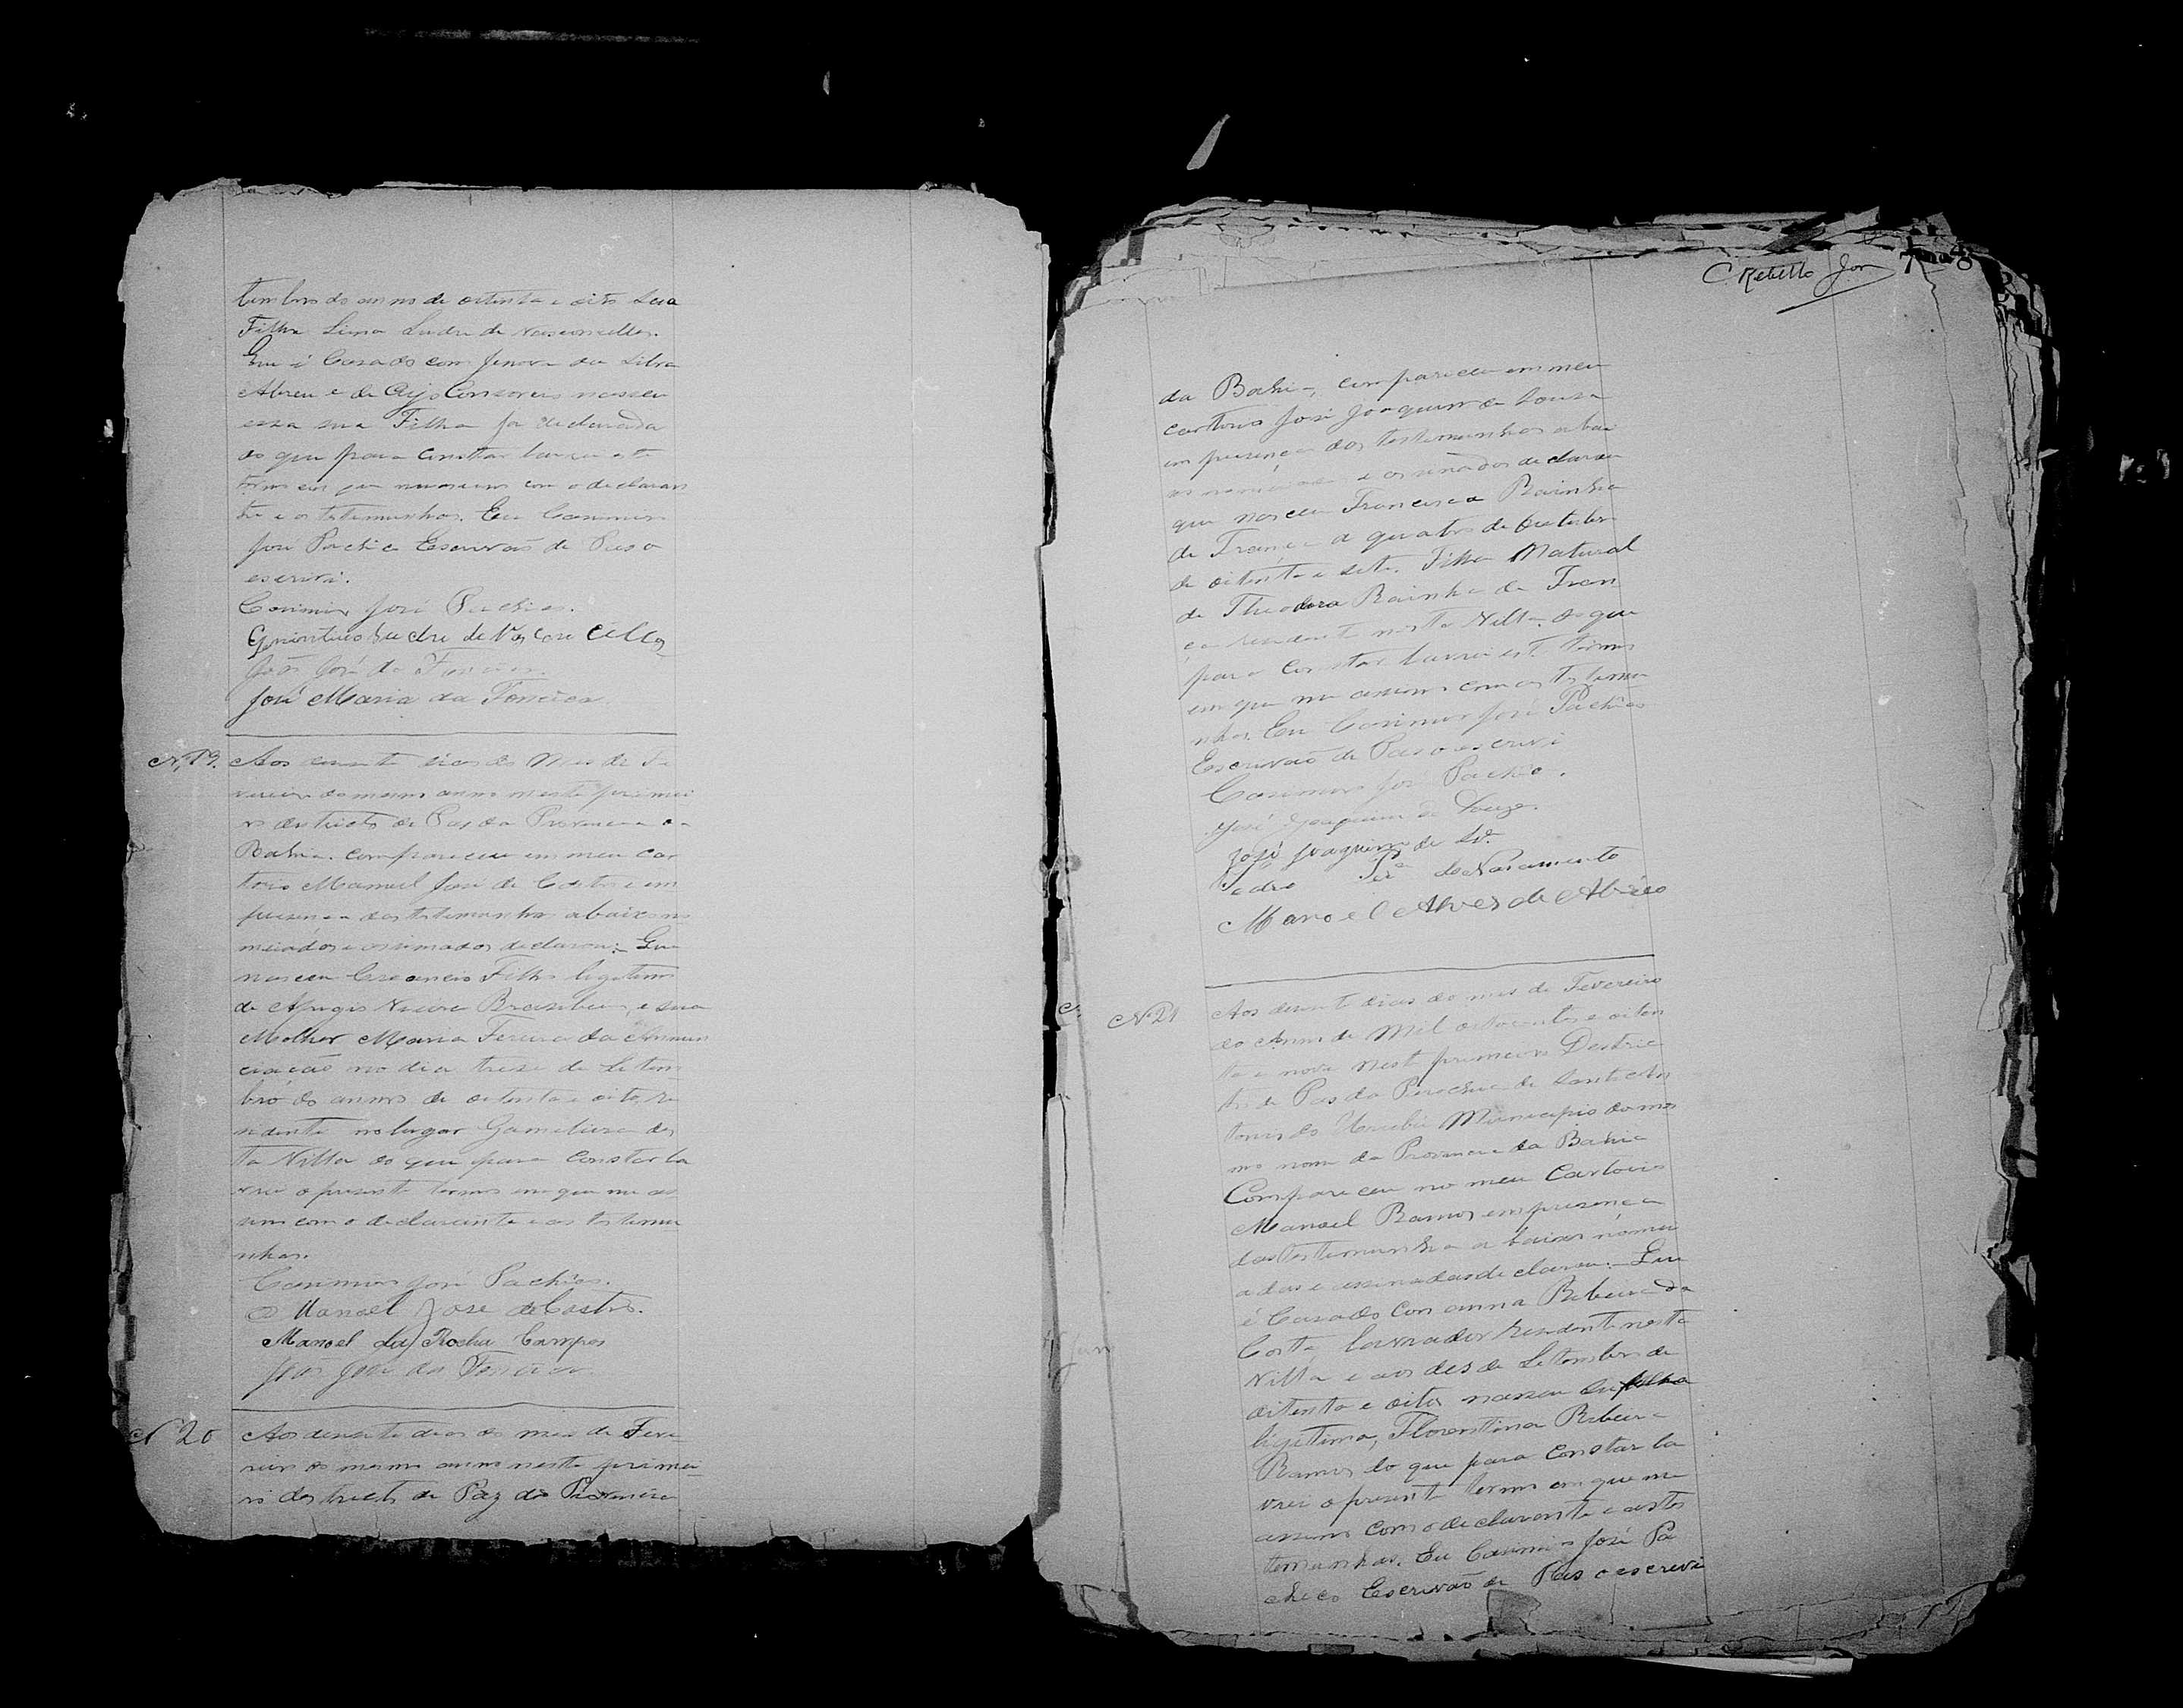 tembro do anno de oitenta e oito sua
Filha Lina Ludre de Vasconcellos.
Que é Casado com Jenova da Silva
Abreu e de Cujo Consorcio nasceu
essa sua Filha ja declarada
do que para Constar lavrei este
termo em que me assino com o declaran
te e as testemunhas. Eu Casimiro
José Pachêco Escrivaõ de Pas o
escrivi.
Casimiro José Pachêco.
Ludre de Vasconcellos
João José da Fonseca
José Maria da Fonseca
N. 19. Aos dias do Mes de Fe
vereiro do mesmo anno neste primei
ro destricto de Pas da Provincia da
Bahia. compareceu em meu car
torio Manuel José de Castro e em
presença das testemunhas abaixo no
meiados e assinados declarou:- Que
nasceu Cresencio Filho legitimo
de Apligio Vieira e sua
Molher Maria Fereira da Annun
ciaçaõ no dia trese de Setem
bro do anno de oitenta e oito, re
sidente no lugar Gameleira des
ta Villa do que para Constar la
vrei o presente termo em que me as
sino com o declarante e as testemu
nhas.
Casimiro José Pachêco.
Manoel Jose de Castro.
Manoel da Rocha Campos
João José da Fonseca
N 20 Aos desenete dias do mes de Feve
reiro do mesmo anno neste primei
ro destricto de Paz da Provincia
C Rebello Jor
da Bahia, compareceu em meu
cartorio José Joaquim de Sousa
em presença das testemunhas abai
xo nomeiadas e assinados declarou
que nasceu Francisca Rainha
de França a quatro de Outubro
de oitenta e sete. Filha Natural
de Theodora Rainha de Fran
ça residente nesta Villa do que
para Constar lavrei este termo
em que me assino com as testemu
nhas. Eu Casimiro José Pachêco
Escrivaõ de Pas o escrivi
Casimiro José Pachêco.
José Joaquim de Souza
José Joaquim de
Pedro do Nascimento
Manoel Alves de Abreo
N 21 Aos desenete dias do mes de Fevereiro
do Anno de Mil oitocentos e oiten
ta e nove nest primeiro Destric
to de Pas da Parochia de Santo An
tonio do Urubú Municipio do mes
mo nome da Provincia da Bahia
Compareceu no meu Cartorio
Manoel Ramos em presença
das testemunhas abaixo nomei
adas e assinadas declarou:- Que
é Casado com Anna Ribeiro da
Costa lavrador residente nesta
Villa e aos des de Setembro de
oitenta e oito nasceu sua filha
ligitima, Florentina Ribeiro
Ramos do que para Constar la
vrei o presente termo em que me
assino com o declarante e as tes
temunhas. Eu Casimiro José Pa
checo Escrivaõ de Pas o escrevi